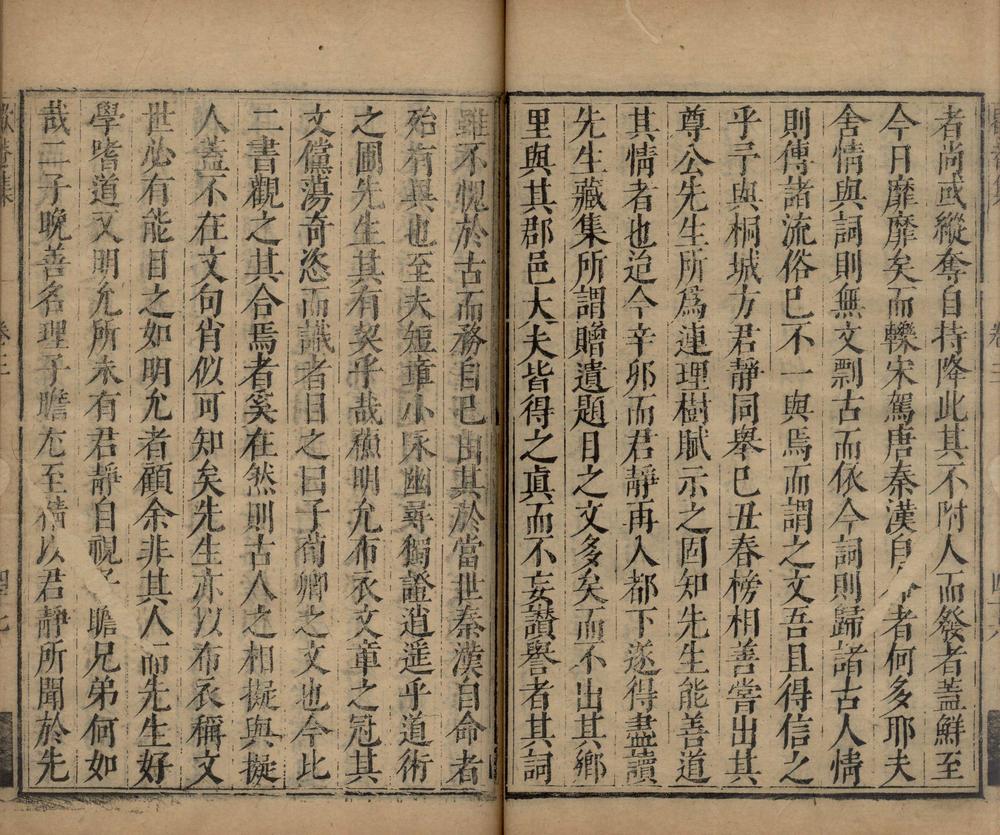 者尚或縱奪自持降此其不附人而發者蓋鮮至
今日靡靡矣而轢宋駕唐秦漢自者何多耶夫
舍情與詞則無文剽古而依今詞則歸諸古人情
則傳諸流俗已不一與焉而謂之文吾且得信之
乎予與桐城方君靜同舉己丑春榜相善嘗出其
尊公先生所爲連理樹賦示之固知先生能善道
其情者也迨今辛卯而君靜再入都下遂得盡讀
先生藏集所謂贈遺題日之文多矣而不出其鄉
里與其郡邑大夫皆得之眞而不妄讃譽者其詞
雖不愧於古而務自已出其於當世秦漢自命者
殆有異也至夫短章小永幽尋獨證逍遥乎道術
之圃先生其有契乎哉蘓明允布衣文章之冠其
文儻蕩奇恣而識者目之曰子荀卿之文也今此
二書觀之其合焉者奚在然則古人之相擬與擬
人蓋不在文句肖似可知矣先生亦以布衣稱文
世必有能目之如明允者顧余非其人而先生好
學嗜道又明允所未有君靜自視子瞻兄弟何如
哉二子晚善名理子瞻尤至倩以君靜所聞於先
卷三